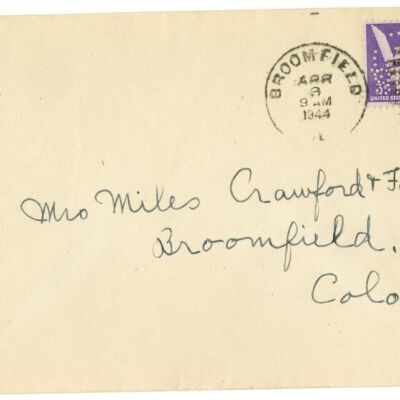 BROOMFIELD
APR
9 AM
1944
3¢
UNITED STATES
Mrs Miles Crawford + F
Broomfield.
Colo